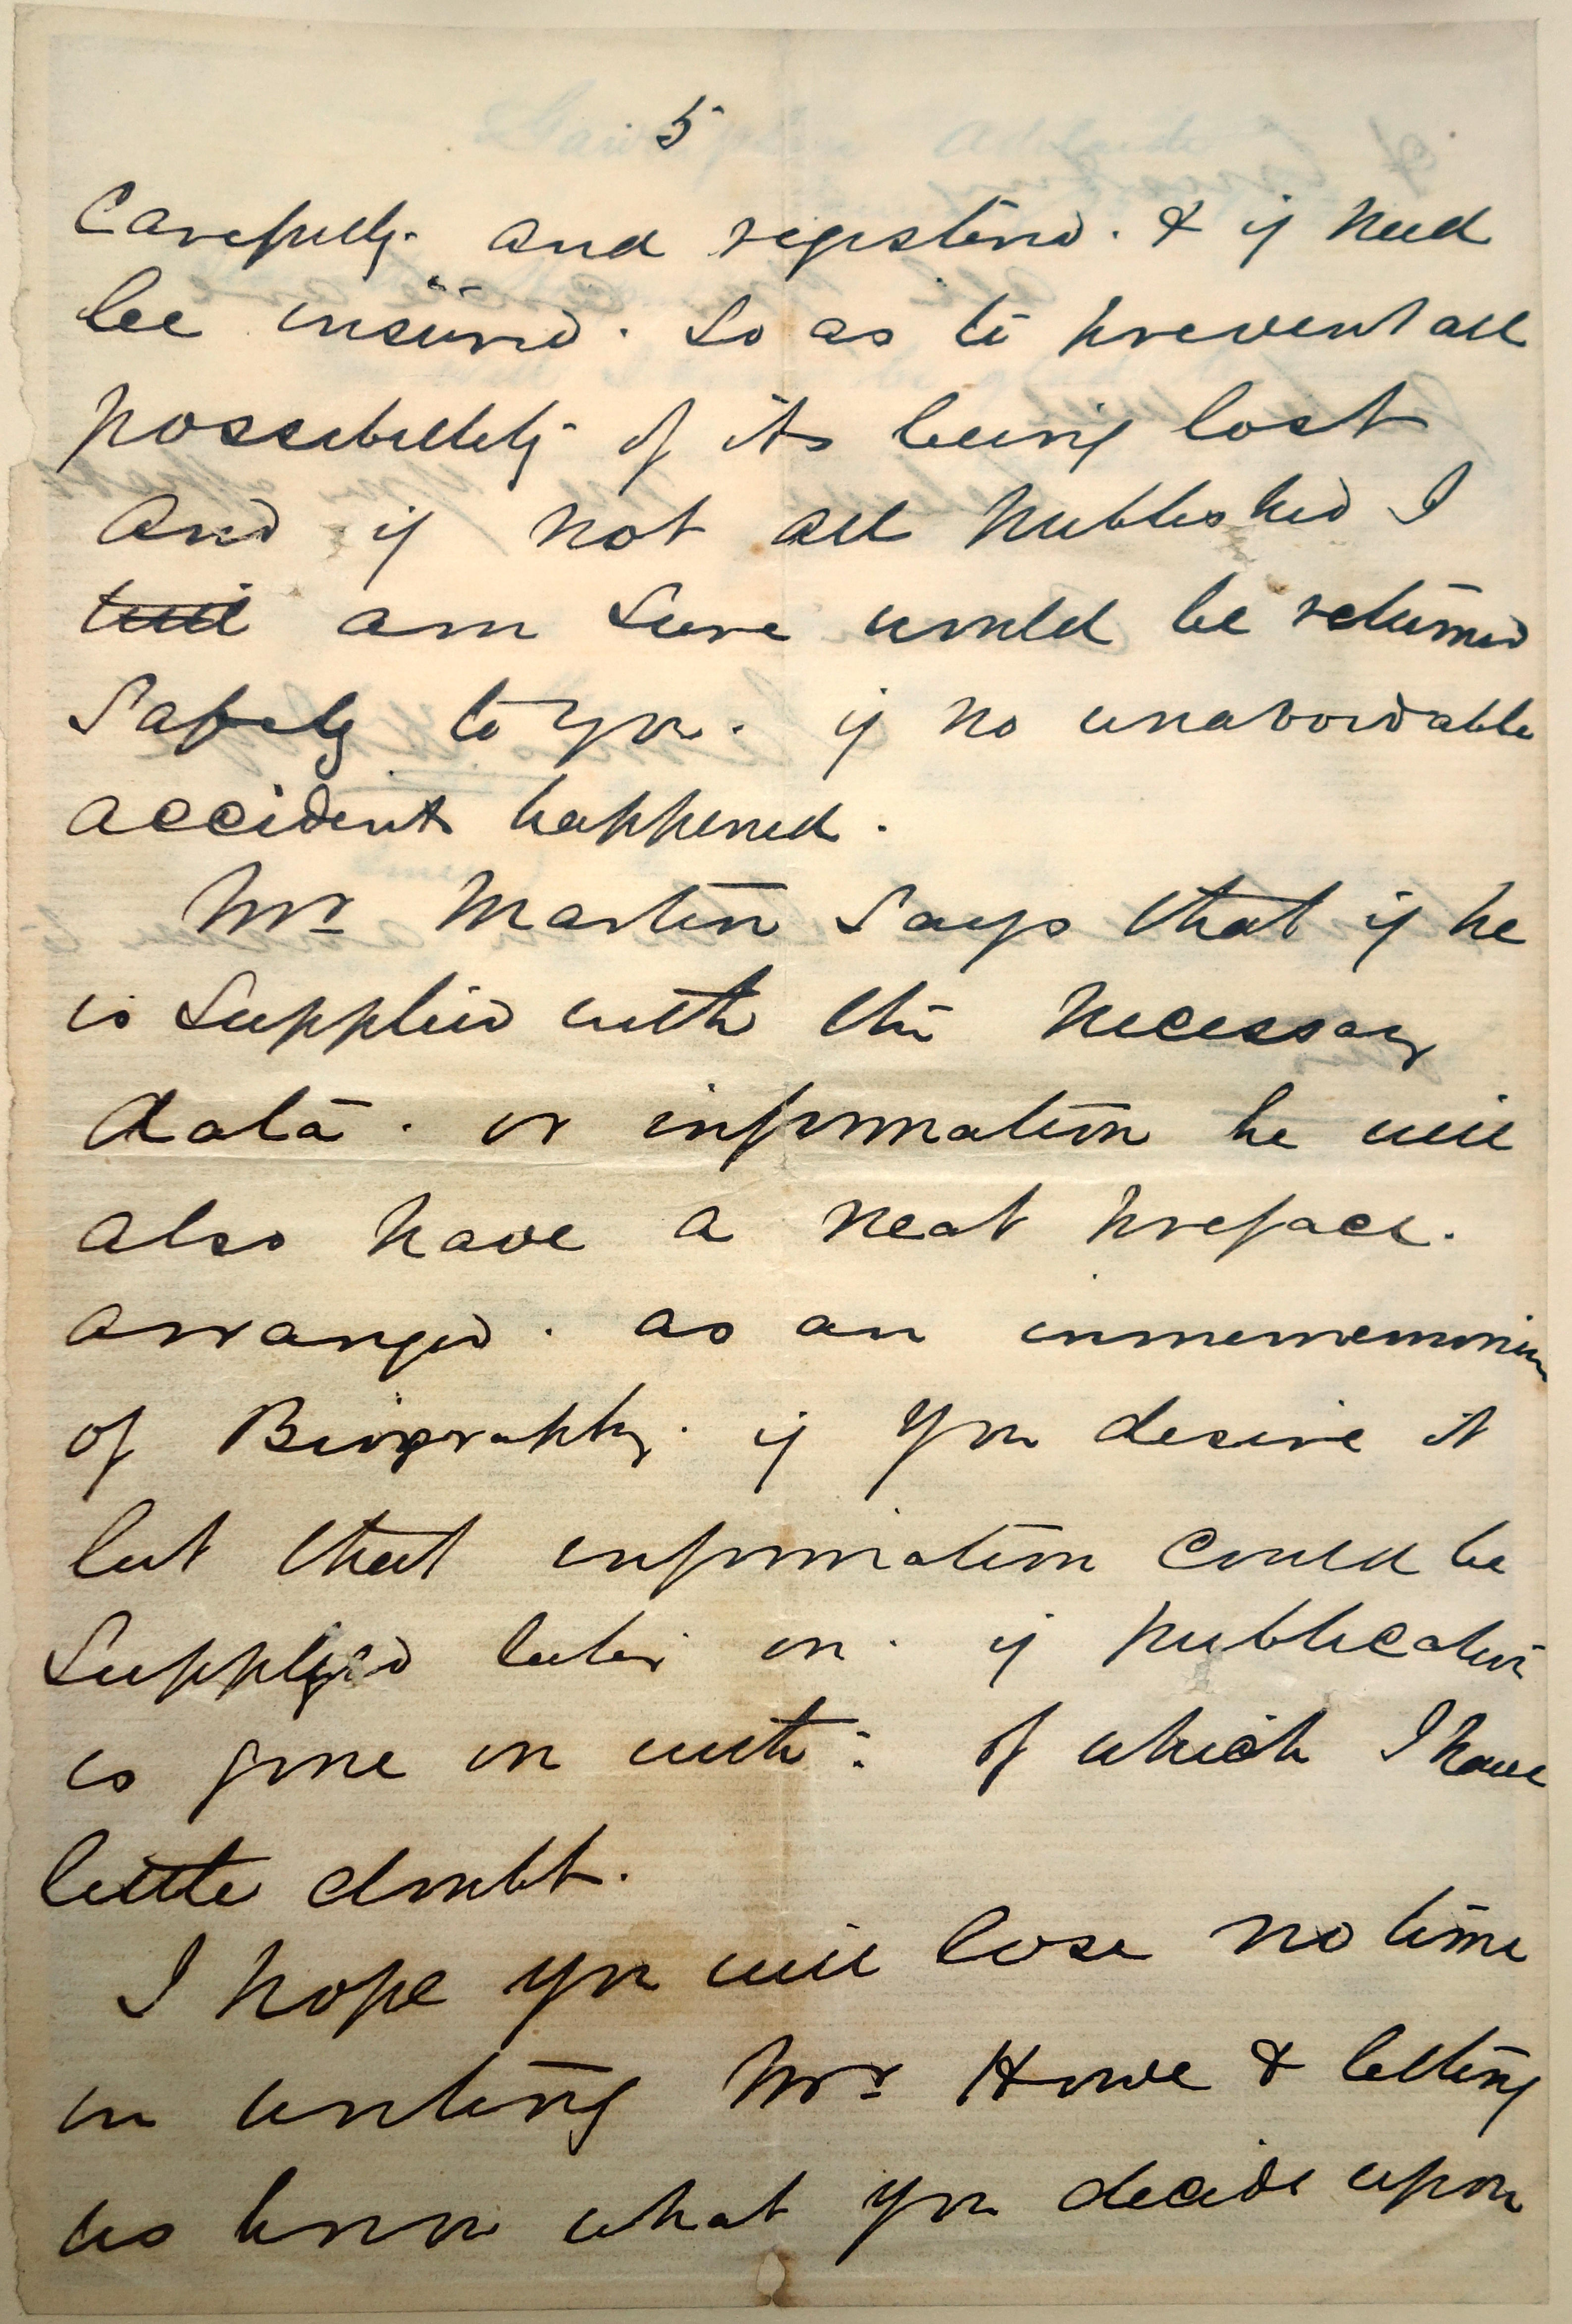 5
Carefully. and registered. & if need
be insured. So as to prevent all
possibility of its being lost
and if not all published I
will am sure would be returned
Safely to you. if no unavoidable
accidents happened.
Mr Martin Says that if he
is Supplied with the necessary
data. or information he will
also have a neat preface.
arranged. as an inmemmemorium
of Biography. if you desire it
but that information could be
Supplied later on. if publication
is gone on with: of which I have
little doubt.
I hope you will lose no time
in writing Mr Howe & letting
us know what you decide upon